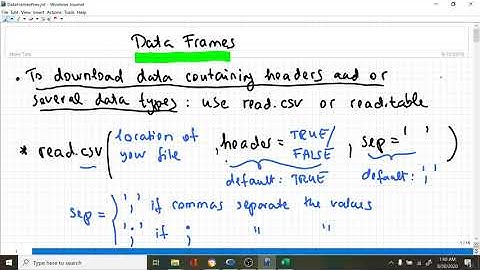 DataFramesPrev.jnt - Windows Journal
File Edit View Insert Actions Tools Help
Note Title
Data Frames
• To download data containing headers and or
several data types : use read.csv or read.table
* read.csv( location of your file , header = TRUE/FALSE , sep = ' ' )
default: TRUE default: ','
sep = ',' if commas separate the values
';' if ; " "
Type here to search